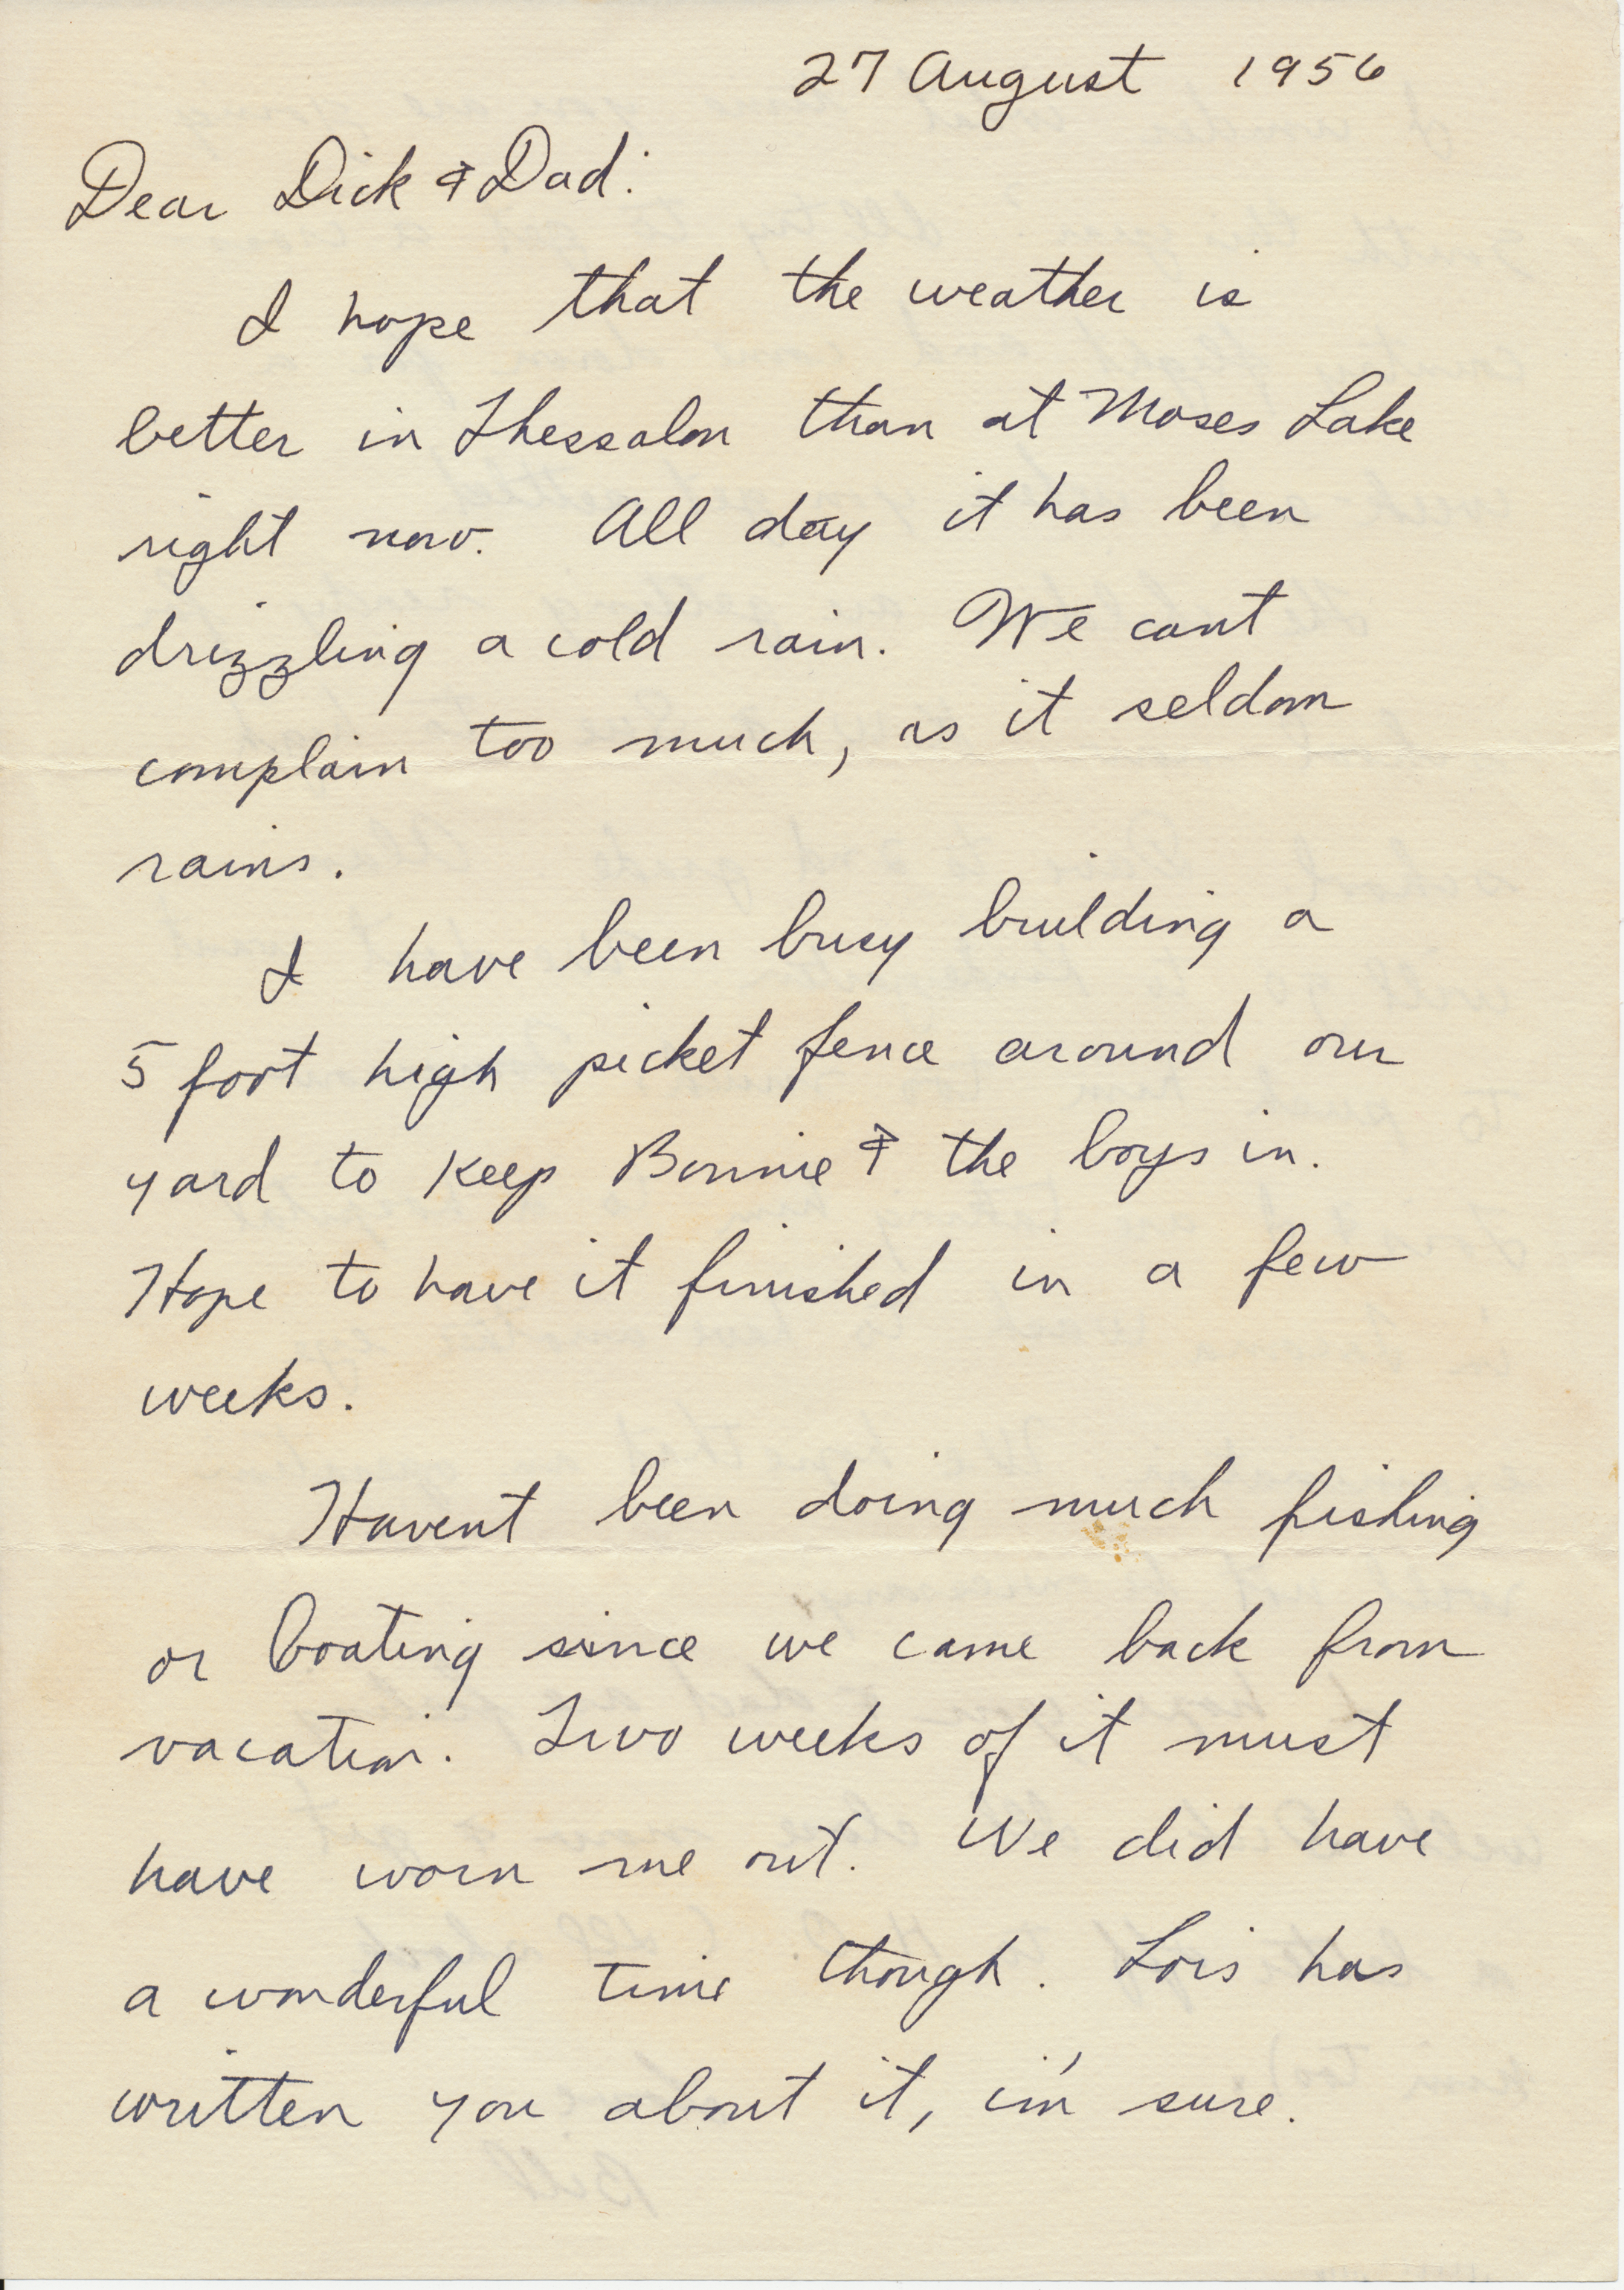 27 August 1956
Dear Dick & Dad:
I hope that the weather is
better in Thessalon than at Moses Lake
right now. All day it has been
drizzling a cold rain. We cant
complain too much, as it seldom
rains.
I have been busy building a
5 foot high picket fence around our
yard to keep Bonnie & the boys in.
Hope to have it finished in a few
weeks.
Havent been doing much fishing
or boating since we came back from
vacation. Two weeks of it must
have worn me out. We did have
a wonderful time though. Lois has
written you about it, i'm sure.
Bill